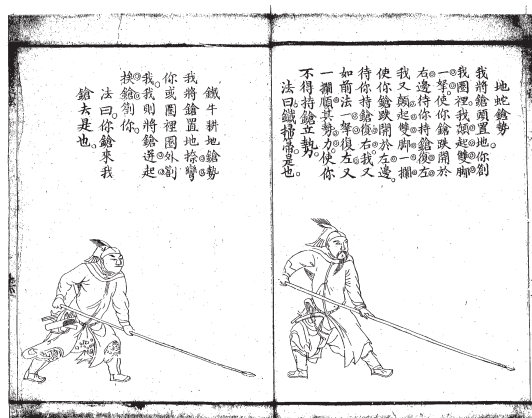 地蛇鎗勢。
我將鎗頭置地你劄
我圈裡。我顛起雙脚
一拏使你鎗跌開於
右邊待你持鎗復左
我又顛起雙脚一攔
使你鎗跌開於左邊。
待你持鎗復右。我又
如前法一拏復左又
一攔順其勢力使你
不得持鎗立勢。
法曰鐵掃箒是也。
鐵牛耕地鎗勢
我將鎗置地捺彎
你或圈裡圈外劄
我。我則將鎗迸起
挨鎗劄你。
法曰你鎗來我
鎗去是也。